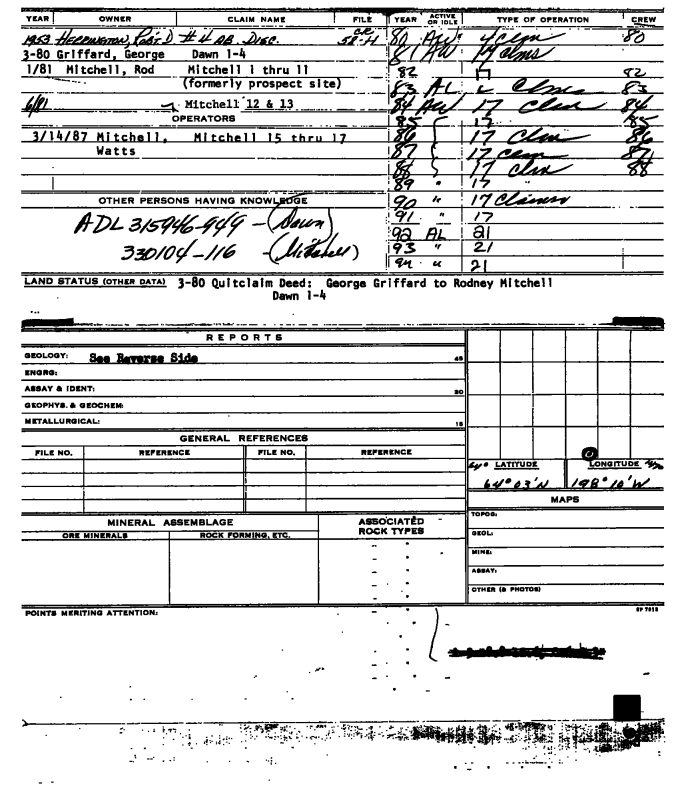 YEAR OWNER CLAIM NAME FILE YEAR ACTIVE OR IDLE TYPE OF OPERATION CREW
1953 HERRINGTON, ROBT. D #4 AB. DISC. 80 AW 4 80
3-80 Griffard, George Dawn 1-4 81 AW 14 clms
1/81 Mitchell, Rod Mitchell 1 thru 11 82 82
(formerly prospect site) 83 AL 83
6/81 Mitchell 12 & 13 84 AW 17 84
OPERATORS 85 17 85
3/14/87 Mitchell, Mitchell 15 thru 17 86 17 Clm 86
Watts 87 17 87
88 17 Clm 88
89 " 17
OTHER PERSONS HAVING KNOWLEDGE 90 " 17 Claims
ADL 315946-949 - (Dawn) 91 " 17
92 AL 21
330104-116 - (Mitchell) 93 " 21
94 " 21
LAND STATUS (OTHER DATA) 3-80 Quitclaim Deed: George Griffard to Rodney Mitchell
Dawn 1-4
REPORTS
GEOLOGY: See Reverse Side 45
ENGRG:
ASSAY & IDENT: 30
GEOPHYS. & GEOCHEM:
METALLURGICAL: 15
GENERAL REFERENCES
FILE NO. REFERENCE FILE NO. REFERENCE
64° LATITUDE LONGITUDE
64°03'N 148°10'W
MAPS
MINERAL ASSEMBLAGE ASSOCIATED ROCK TYPES TOPOG:
ORE MINERALS ROCK FORMING, ETC. GEOL:
MINE:
ASSAY:
OTHER (& PHOTOS)
POINTS MERITING ATTENTION: